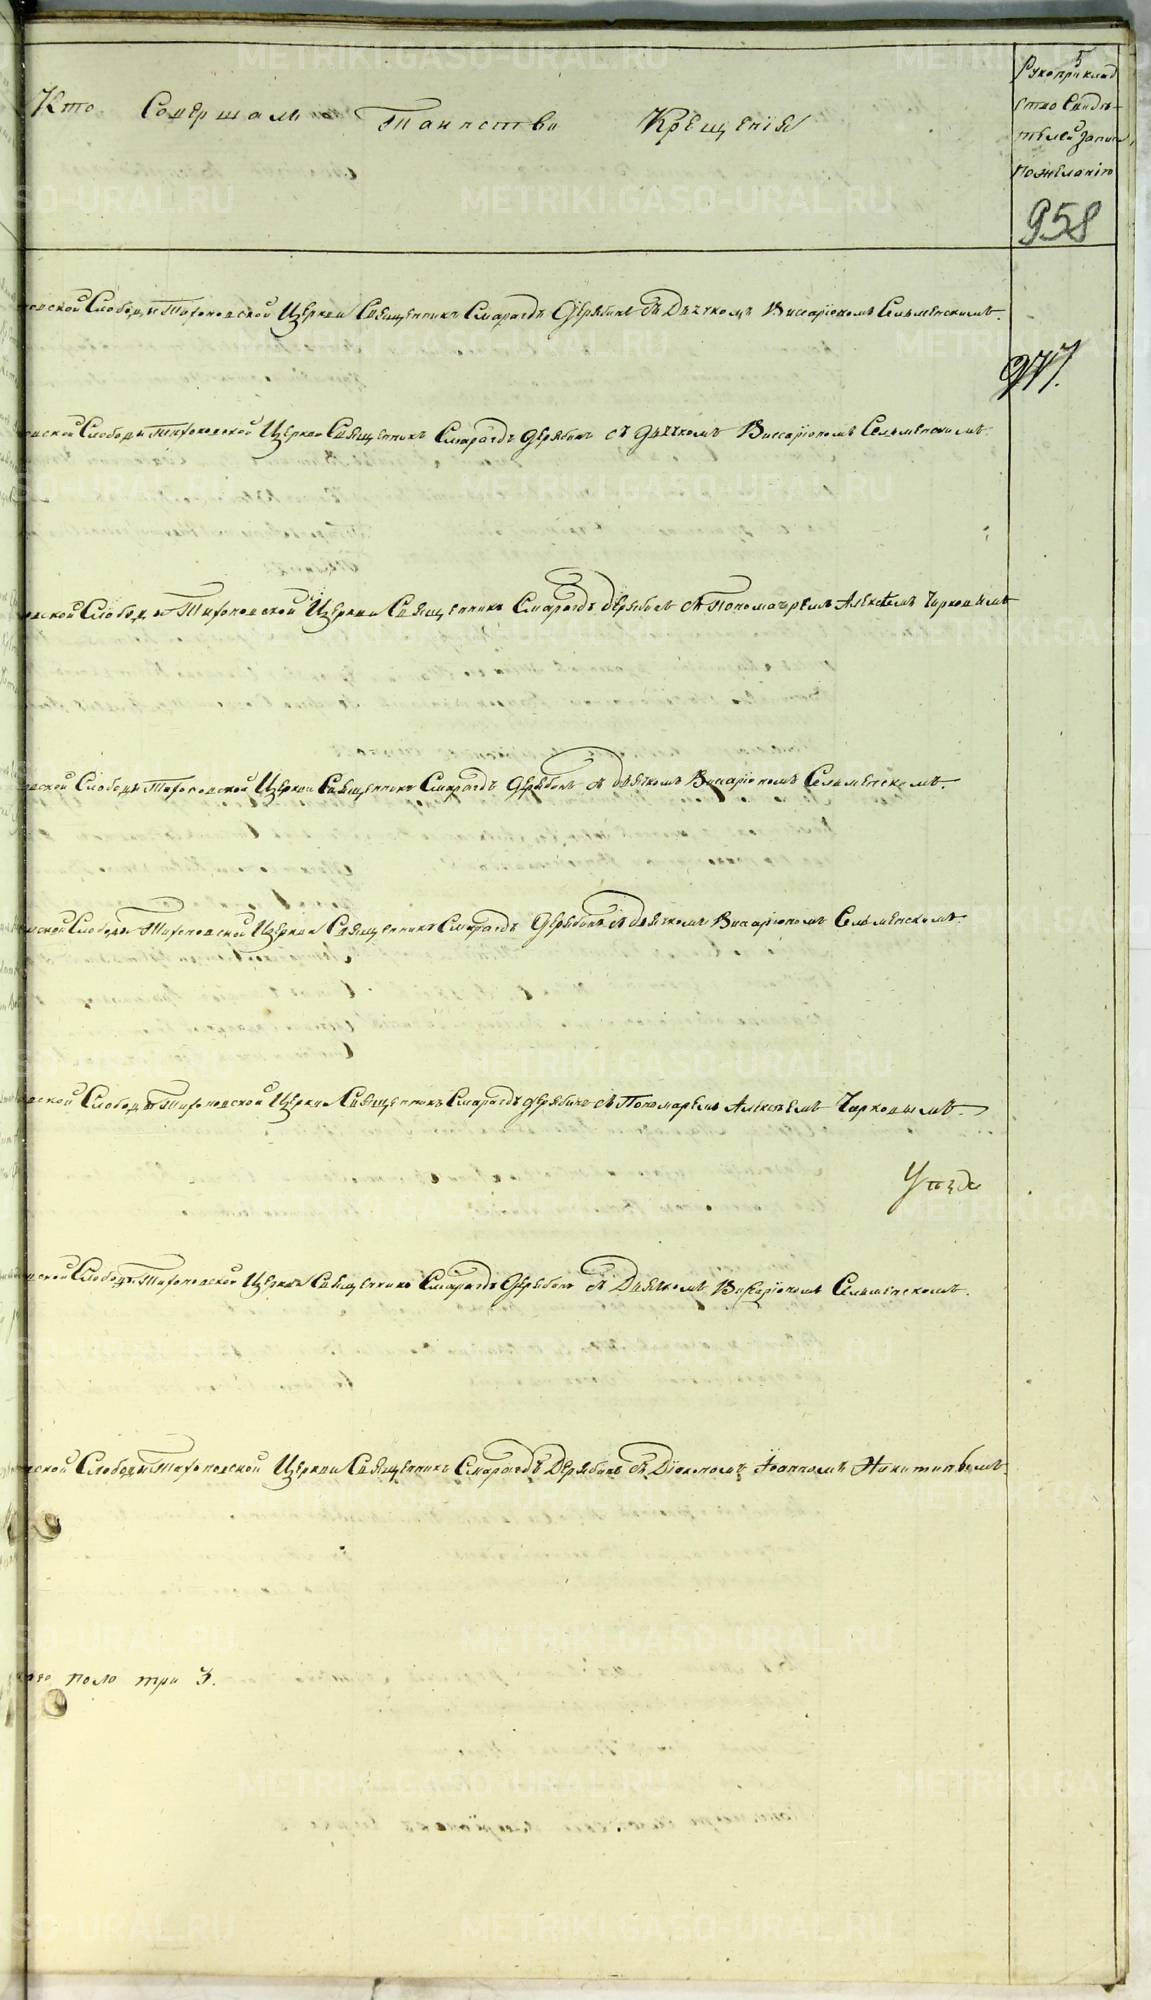 5
Кто Совершалъ Таинство Крещенія
Рукоприклад
ство Свидѣ-
телей записи
по желанію
958
Слободы Тихоновской Церкви Священникъ Смарагдъ Дерябинъ съ Дьячкомъ Виссаріономъ Сельменскимъ.
Слободы Тихоновской Церкви Священникъ Смарагдъ Дерябинъ съ дьячкомъ Виссаріономъ Сельменскимъ.
Слободы Тихоновской Церкви Священникъ Смарагдъ Дерябинъ съ Пономаремъ Алексѣемъ
Слободы Тихоновской Церкви Священникъ Смарагдъ Дерябинъ съ дьячкомъ Висаріономъ Сельменскимъ.
Слободы Тихоновской Церкви Священникъ Смарагдъ Дерябинъ съ дьячкомъ Висаріономъ Сельменскимъ.
Слободы Тихоновской Церкви Священникъ Смарагдъ Дерябинъ съ Пономаремъ Алексѣемъ
Слободы Тихоновской Церкви Священникъ Смарагдъ Дерябинъ съ Дьячкомъ Висаріономъ Сельменскимъ.
Слободы Тихоновской Церкви Священникъ Смарагдъ Дерябинъ съ Діакономъ Іоанномъ Никитинымъ.
пола три 3.
METRIKI.GASO-URAL.RU